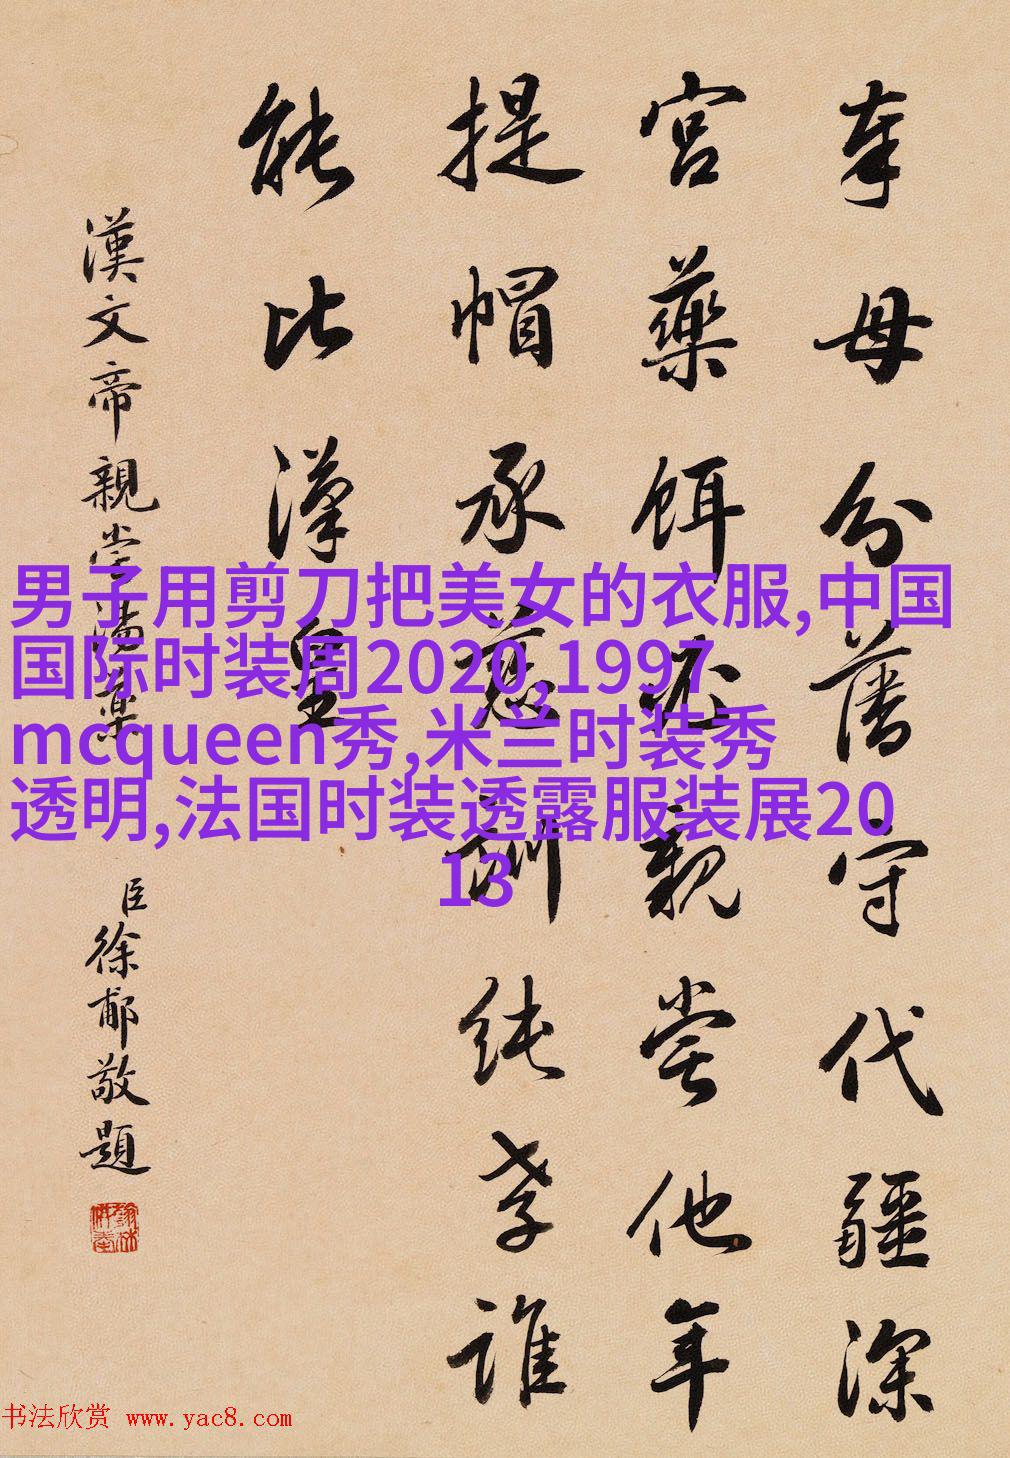 奉母分藩守代疆深
宮藥餌必親嘗他年
提帽承慈訓純孝誰
能比漢皇
漢文帝親嘗湯藥
臣徐郙敬題
男子用剪刀把美女的衣服,中国
国际时装周2020,1997
mcqueen秀,米兰时装秀
透明,法国时装透露服装展20
13
书法欣赏 www.yac8.com